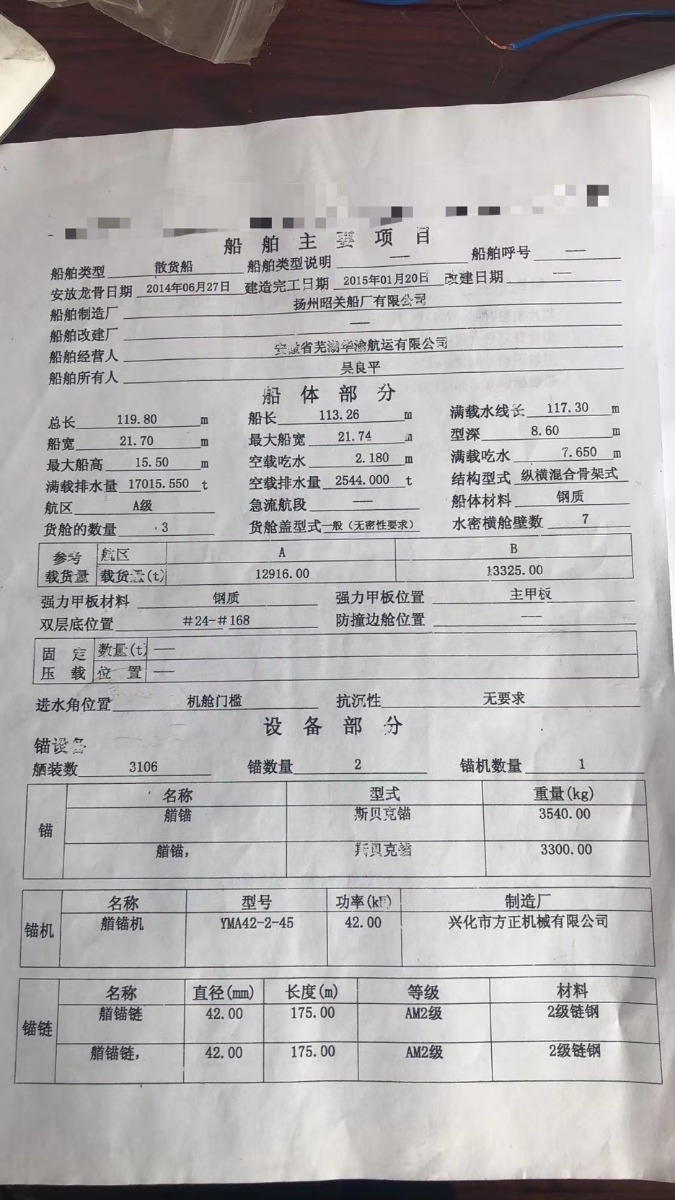 船舶主要项目
船舶类型 散货船 船舶类型说明 —— 船舶呼号 ——
安放龙骨日期 2014年06月27日 建造完工日期 2015年01月20日 改建日期 ——
船舶制造厂 扬州昭关船厂有限公司
船舶改建厂 ——
船舶经营人 安徽省芜湖华渝航运有限公司
船舶所有人 吴良平
船体部分
总长 119.80 m 船长 113.26 m 满载水线长 117.30 m
船宽 21.70 m 最大船宽 21.74 m 型深 8.60 m
最大船高 15.50 m 空载吃水 2.180 m 满载吃水 7.650 m
满载排水量 17015.550 t 空载排水量 2544.000 t 结构型式 纵横混合骨架式
航区 A级 急流航段 —— 船体材料 钢质
货舱的数量 3 货舱盖型式 一般（无密性要求） 水密横舱壁数 7
参考 航区 A B
载货量 载货量(t) 12916.00 13325.00
强力甲板材料 钢质 强力甲板位置 主甲板
双层底位置 #24-#168 防撞边舱位置 ——
固定 数量(t) ——
压载 位置 ——
进水角位置 机舱门槛 抗沉性 无要求
设备部分
锚设备
舾装数 3106 锚数量 2 锚机数量 1
锚
名称 型式 重量(kg)
艏锚 斯贝克锚 3540.00
艏锚, 斯贝克锚 3300.00
锚机
名称 型号 功率(kW) 制造厂
艏锚机 YMA42-2-45 42.00 兴化市方正机械有限公司
锚链
名称 直径(mm) 长度(m) 等级 材料
艏锚链 42.00 175.00 AM2级 2级链钢
艏锚链, 42.00 175.00 AM2级 2级链钢